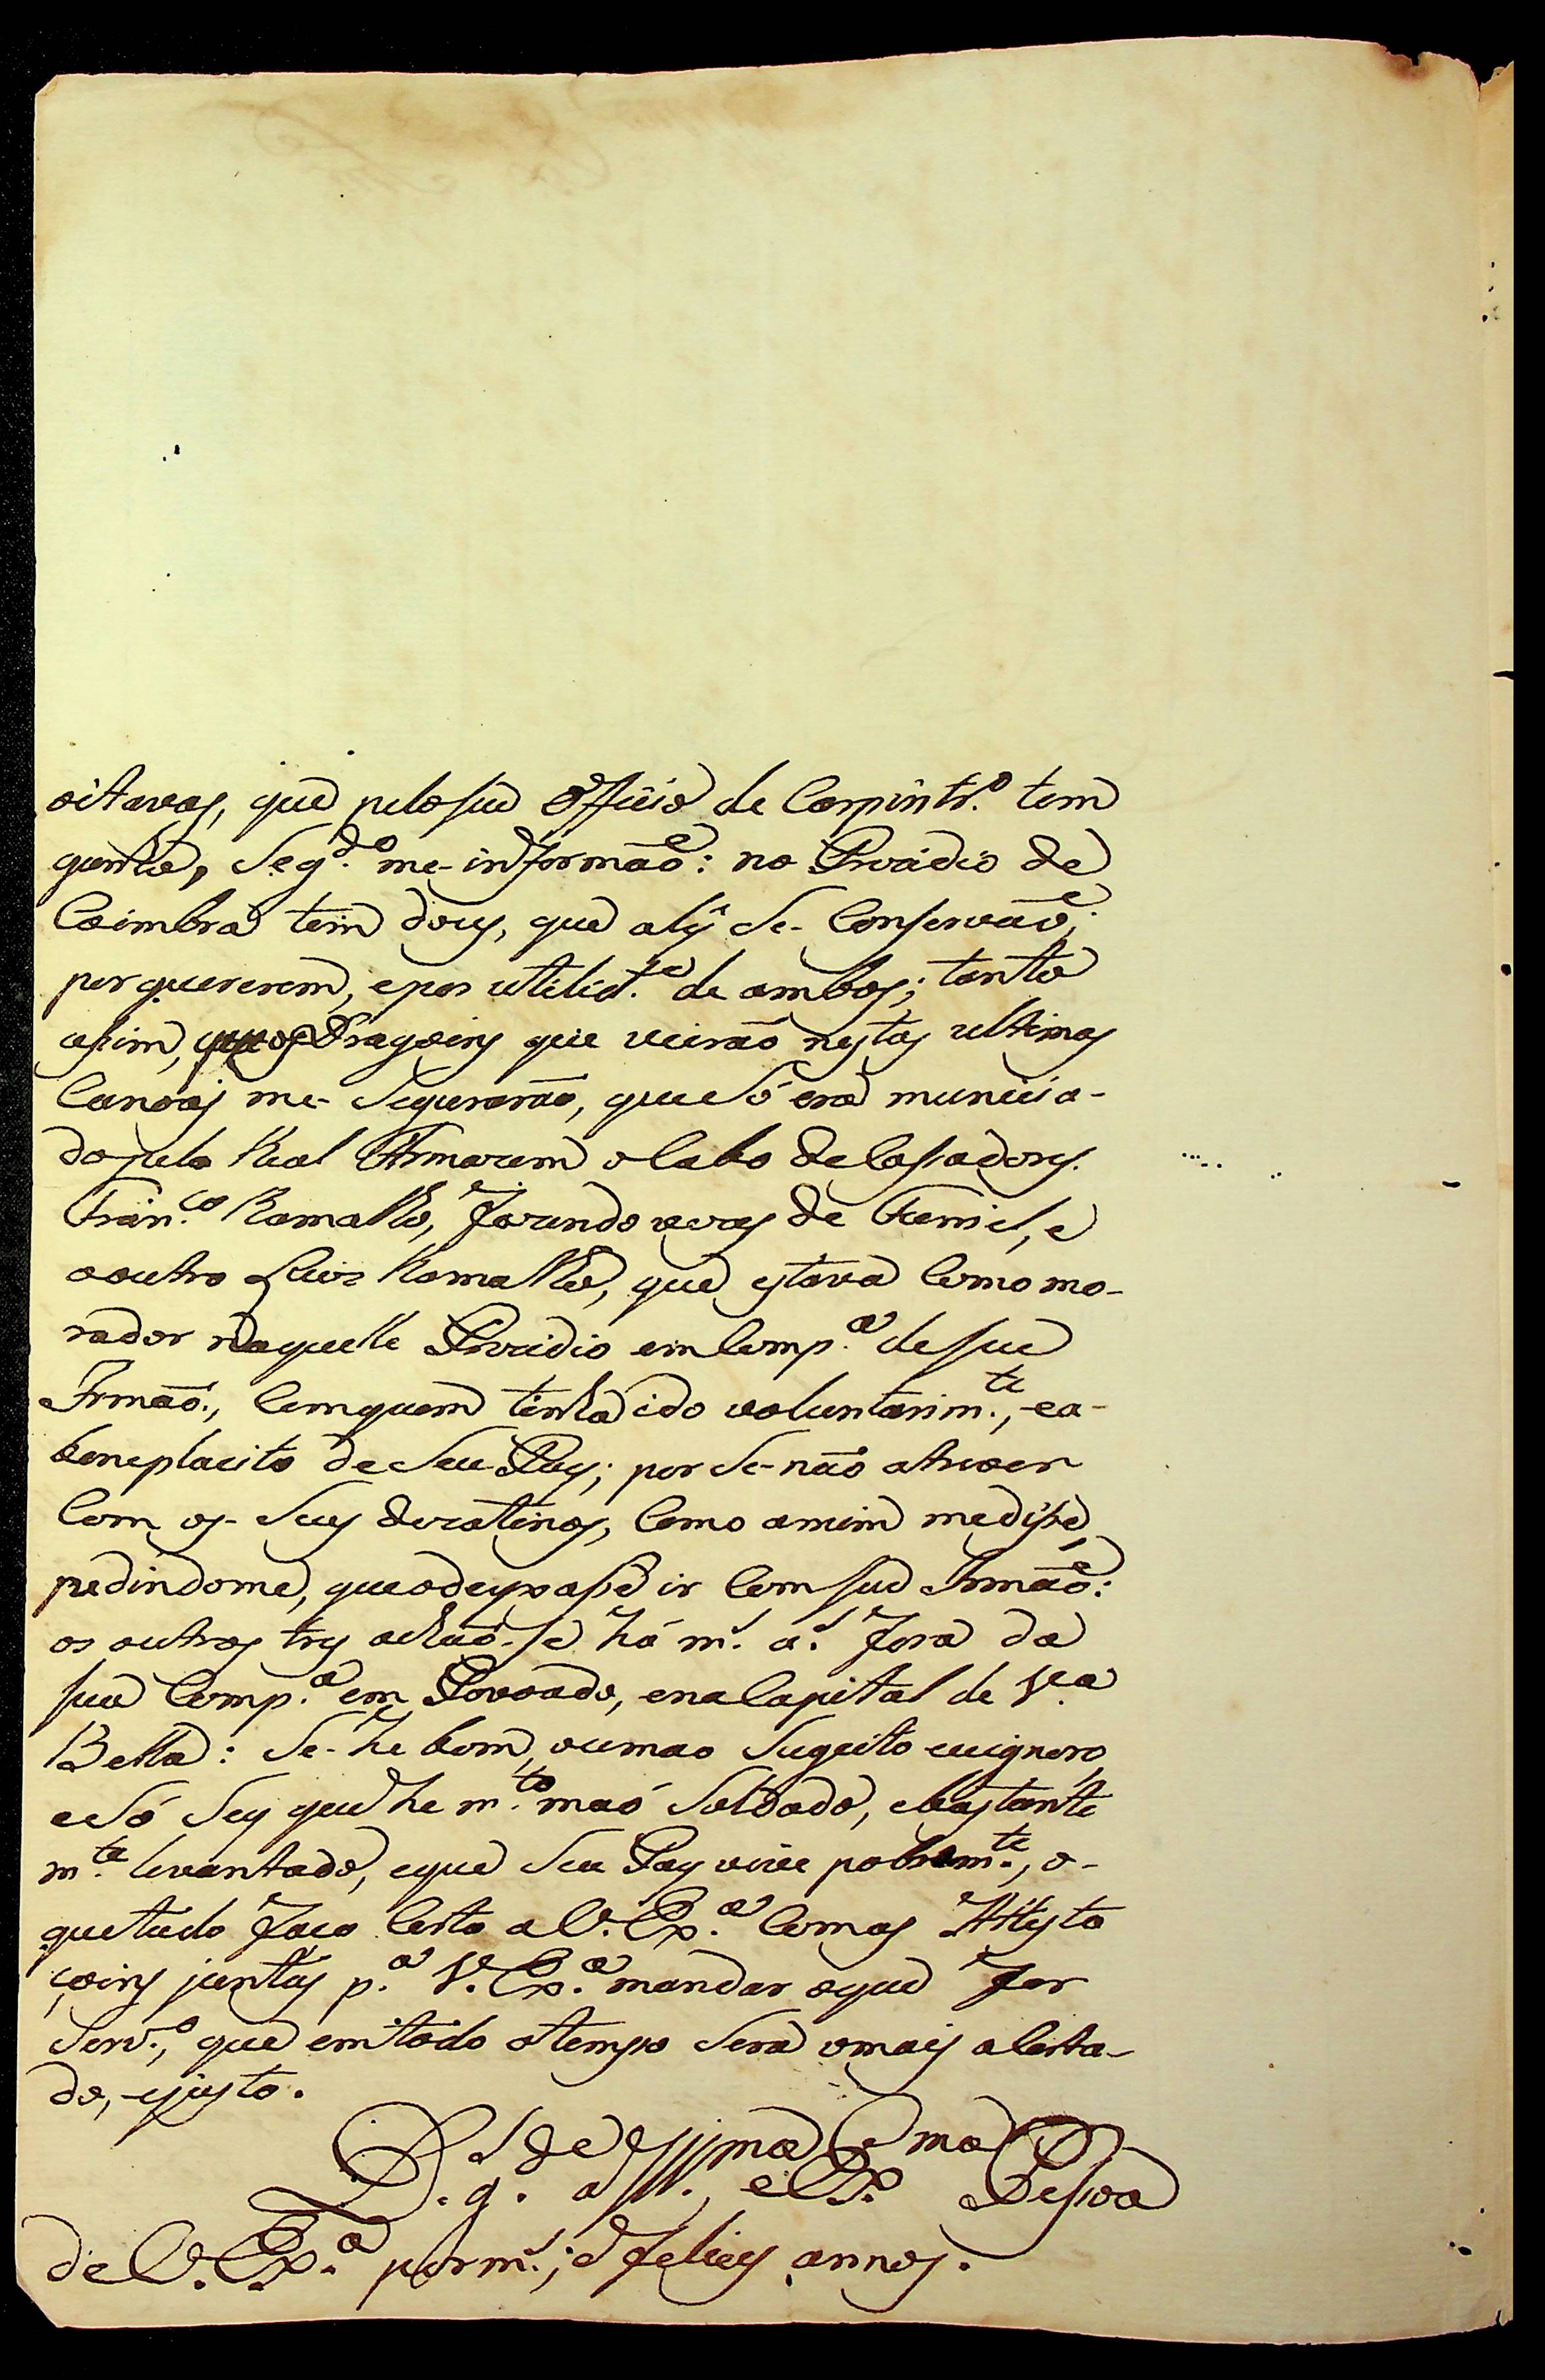 oitavas, que pelo seu Officio de Carpintr.º tem
ganho, Seg.do me-informão: no Prezidio de
Coimbra tem dous, que aly Se-Conservão;
por quererem, epor utilid.e de ambos; tanto
asim, que os Dragoins que vierão nestas ultimas
Canoas me-Segurarão, que Só era municia-
do pelo Real Armazem o Cabo de Casadores.
Fran.co Ramalho, fazendo vezes de Furriel, e
o outro Luiz Ramalho, que estava Como mo-
rador naquelle Prezidio em Comp.a de seu
Irmão, Com quem tinha ido voluntariam.te, ea-
beneplacito de Seu Pay; por Se-não atrever
Com os-Seus dezatinos, Como amim me disse,
pedindome, que o deyxasse ir Com seu Irmão:
os outros tres achão-se há m.s a.s fora da
sua Comp.a em Povoado, ena Capital de V.a
Bella: Se-he bom, ou mao Sugeito eu ignoro,
e Só Sey que he m.to maó Soldado, ebastante
m.te levantado, eque Seu Pay vive pobrem.te, o-
que tudo faço Certo a V. Ex.a Com as Attesta
çoins juntas p.a V. Ex.a mandar o que for
Serv.º, que em todo o tempo Será o mais acerta-
do, ejusto.
D.s g.de a Ill.ma, e Ex.ma Pessoa
de V. Ex.a por m.s, e felices annos.